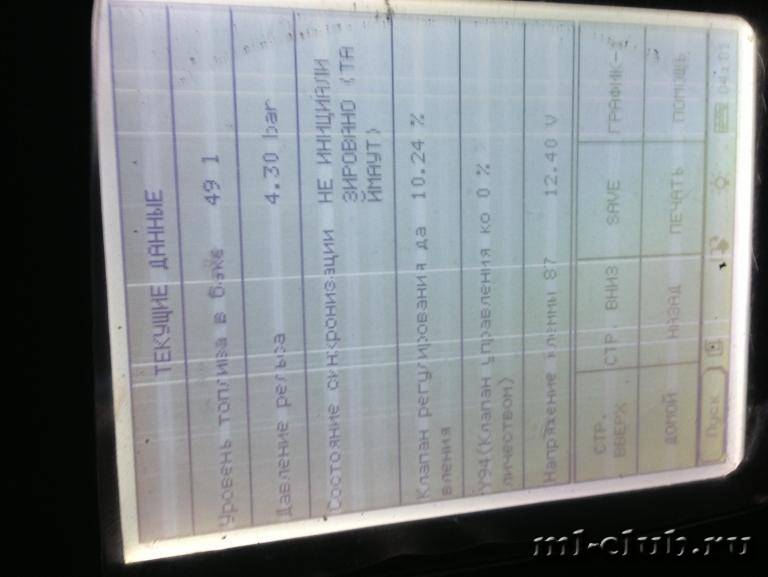 ТЕКУЩИЕ ДАННЫЕ
Уровень топлива в баке 49 l
Давление рельса 4.30 bar
Состояние синхронизации НЕ ИНИЦИАЛИ
ЗИРОВАНО (ТА
ЙМАУТ)
Клапан регулирования да 10.24 %
вления
Y94(Клапан управления ко 0 %
личеством)
Напряжение клеммы 87 12.40 V
СТР.
ВВЕРХ
СТР. ВНИЗ
SAVE
ГРАФИК-1
ДОМОЙ
НАЗАД
ПЕЧАТЬ
ПОМОЩЬ
Пуск
04:01
ml-club.ru